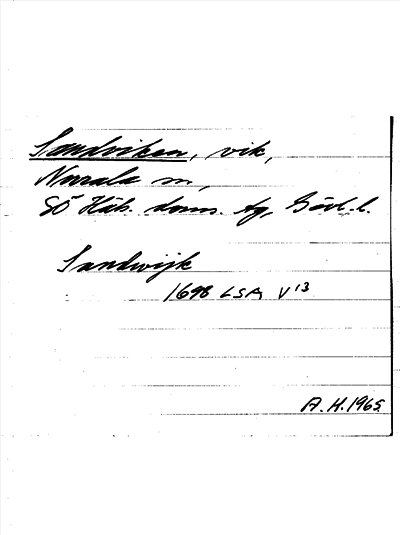 Sandviken, vik,
Norrala sn,
SÖ Häls. doms. tg, Gävl. l.
Sandwijk
1698 LSA V 13
A. H. 1965